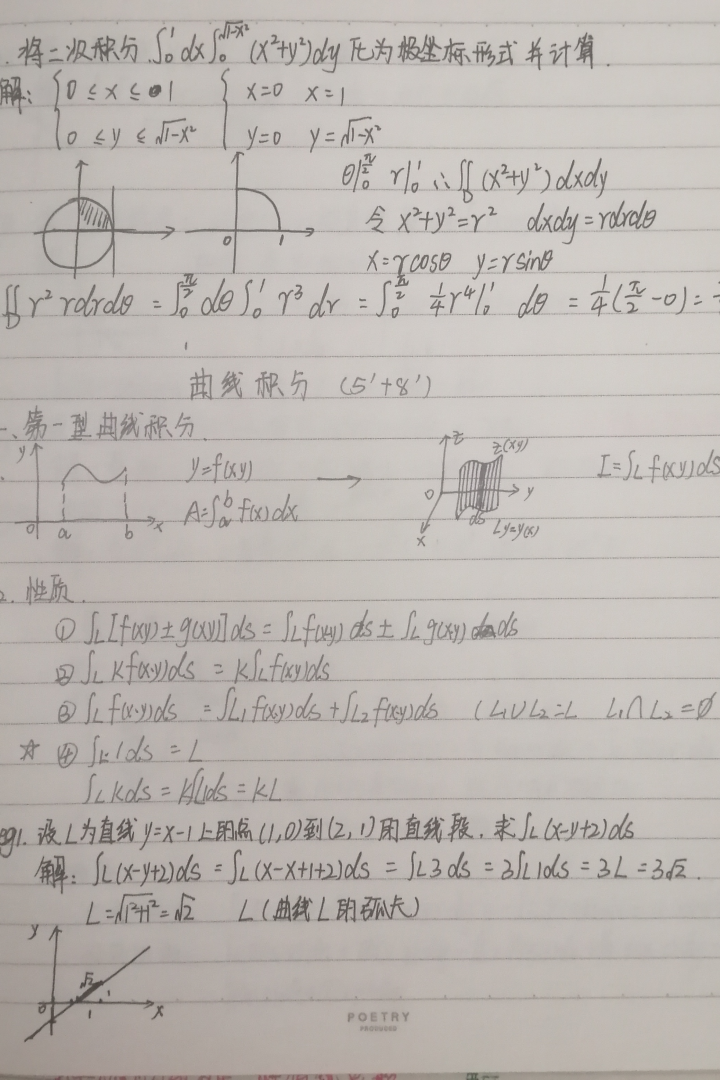 . 将二次积分 ∫₀¹dx∫₀^√(1-x²) (x²+y²)dy 化为极坐标形式并计算.
解: { 0 ≤ x ≤ 1 { x=0 x=1
0 ≤ y ≤ √(1-x²) y=0 y=√(1-x²)
θ|₀^(π/2) r|₀¹ ∴∬_D (x²+y²)dxdy
令 x²+y²=r² dxdy=rdrdθ
0 1
x=rcosθ y=rsinθ
∬_D r² rdrdθ = ∫₀^(π/2) dθ∫₀¹ r³dr = ∫₀^(π/2) ¼r⁴|₀¹ dθ = ¼(π/2-0)=
曲线积分 (5'+8')
一、第一型曲线积分.
y y=f(xy) → z z(xy) I=∫_L f(xy)ds
A=∫ₐᵇf(x)dx 0 y
0 a b x x ds L y=y(x)
2. 性质.
① ∫_L[f(xy)±g(xy)]ds=∫_Lf(xy)ds±∫_Lg(xy)ds
② ∫_L kf(x·y)ds = k∫_Lf(xy)ds
③ ∫_L f(x·y)ds = ∫_L₁f(xy)ds+∫_L₂f(xy)ds (L₁∪L₂=L L₁∩L₂=∅
☆ ④ ∫_L 1ds = L
∫_L kds = k∫_L1ds = kL
eg1. 设L为直线y=x-1上的点(1,0)到(2,1)的直线段. 求∫_L(x-y+2)ds
解: ∫_L(x-y+2)ds = ∫_L(x-x+1+2)ds = ∫_L3ds = 3∫_L1ds = 3L = 3√2.
L=√(1²+1²)=√2 L(曲线L的弧长)
y
√2
0 1 1 x
POETRY
PRODUCED